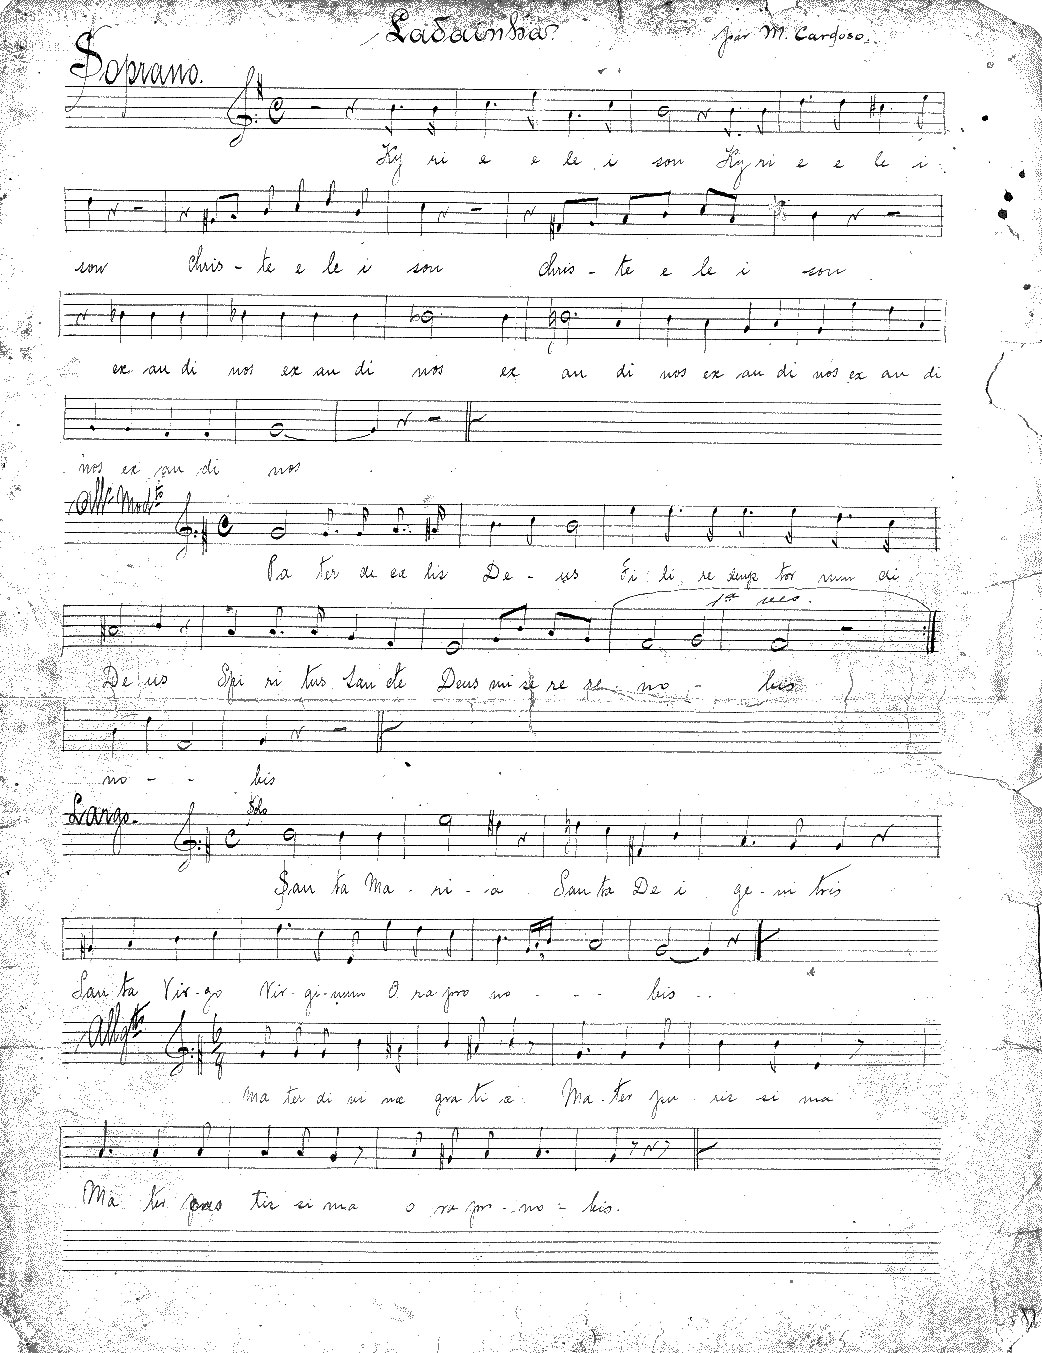 Ladainha
por M. Cardoso.
Soprano.
Ky ri e e le i son Ky ri e e le i
son Chris - te e le i son Chris - te e le i son
ex au di nos ex au di nos ex au di nos ex au di nos ex au di
nos ex au di nos
All.º Mod.to
Pa ter de cæ lis De - us Fi li re demp tor mun di
1ª vez.
De us Spi ri tus San cte Deus mi se re re no - bis
no - - bis
Largo.
Solo
San ta Ma - ri - a San ta De i ge - ni tris
San ta Vir - go Vir - gi - num O ra pro no - - - bis
Allg.tto
Ma ter di vi næ gra ti æ Ma - ter pu ris si ma
Ma ter cas tis si ma o ra pro - no - bis.